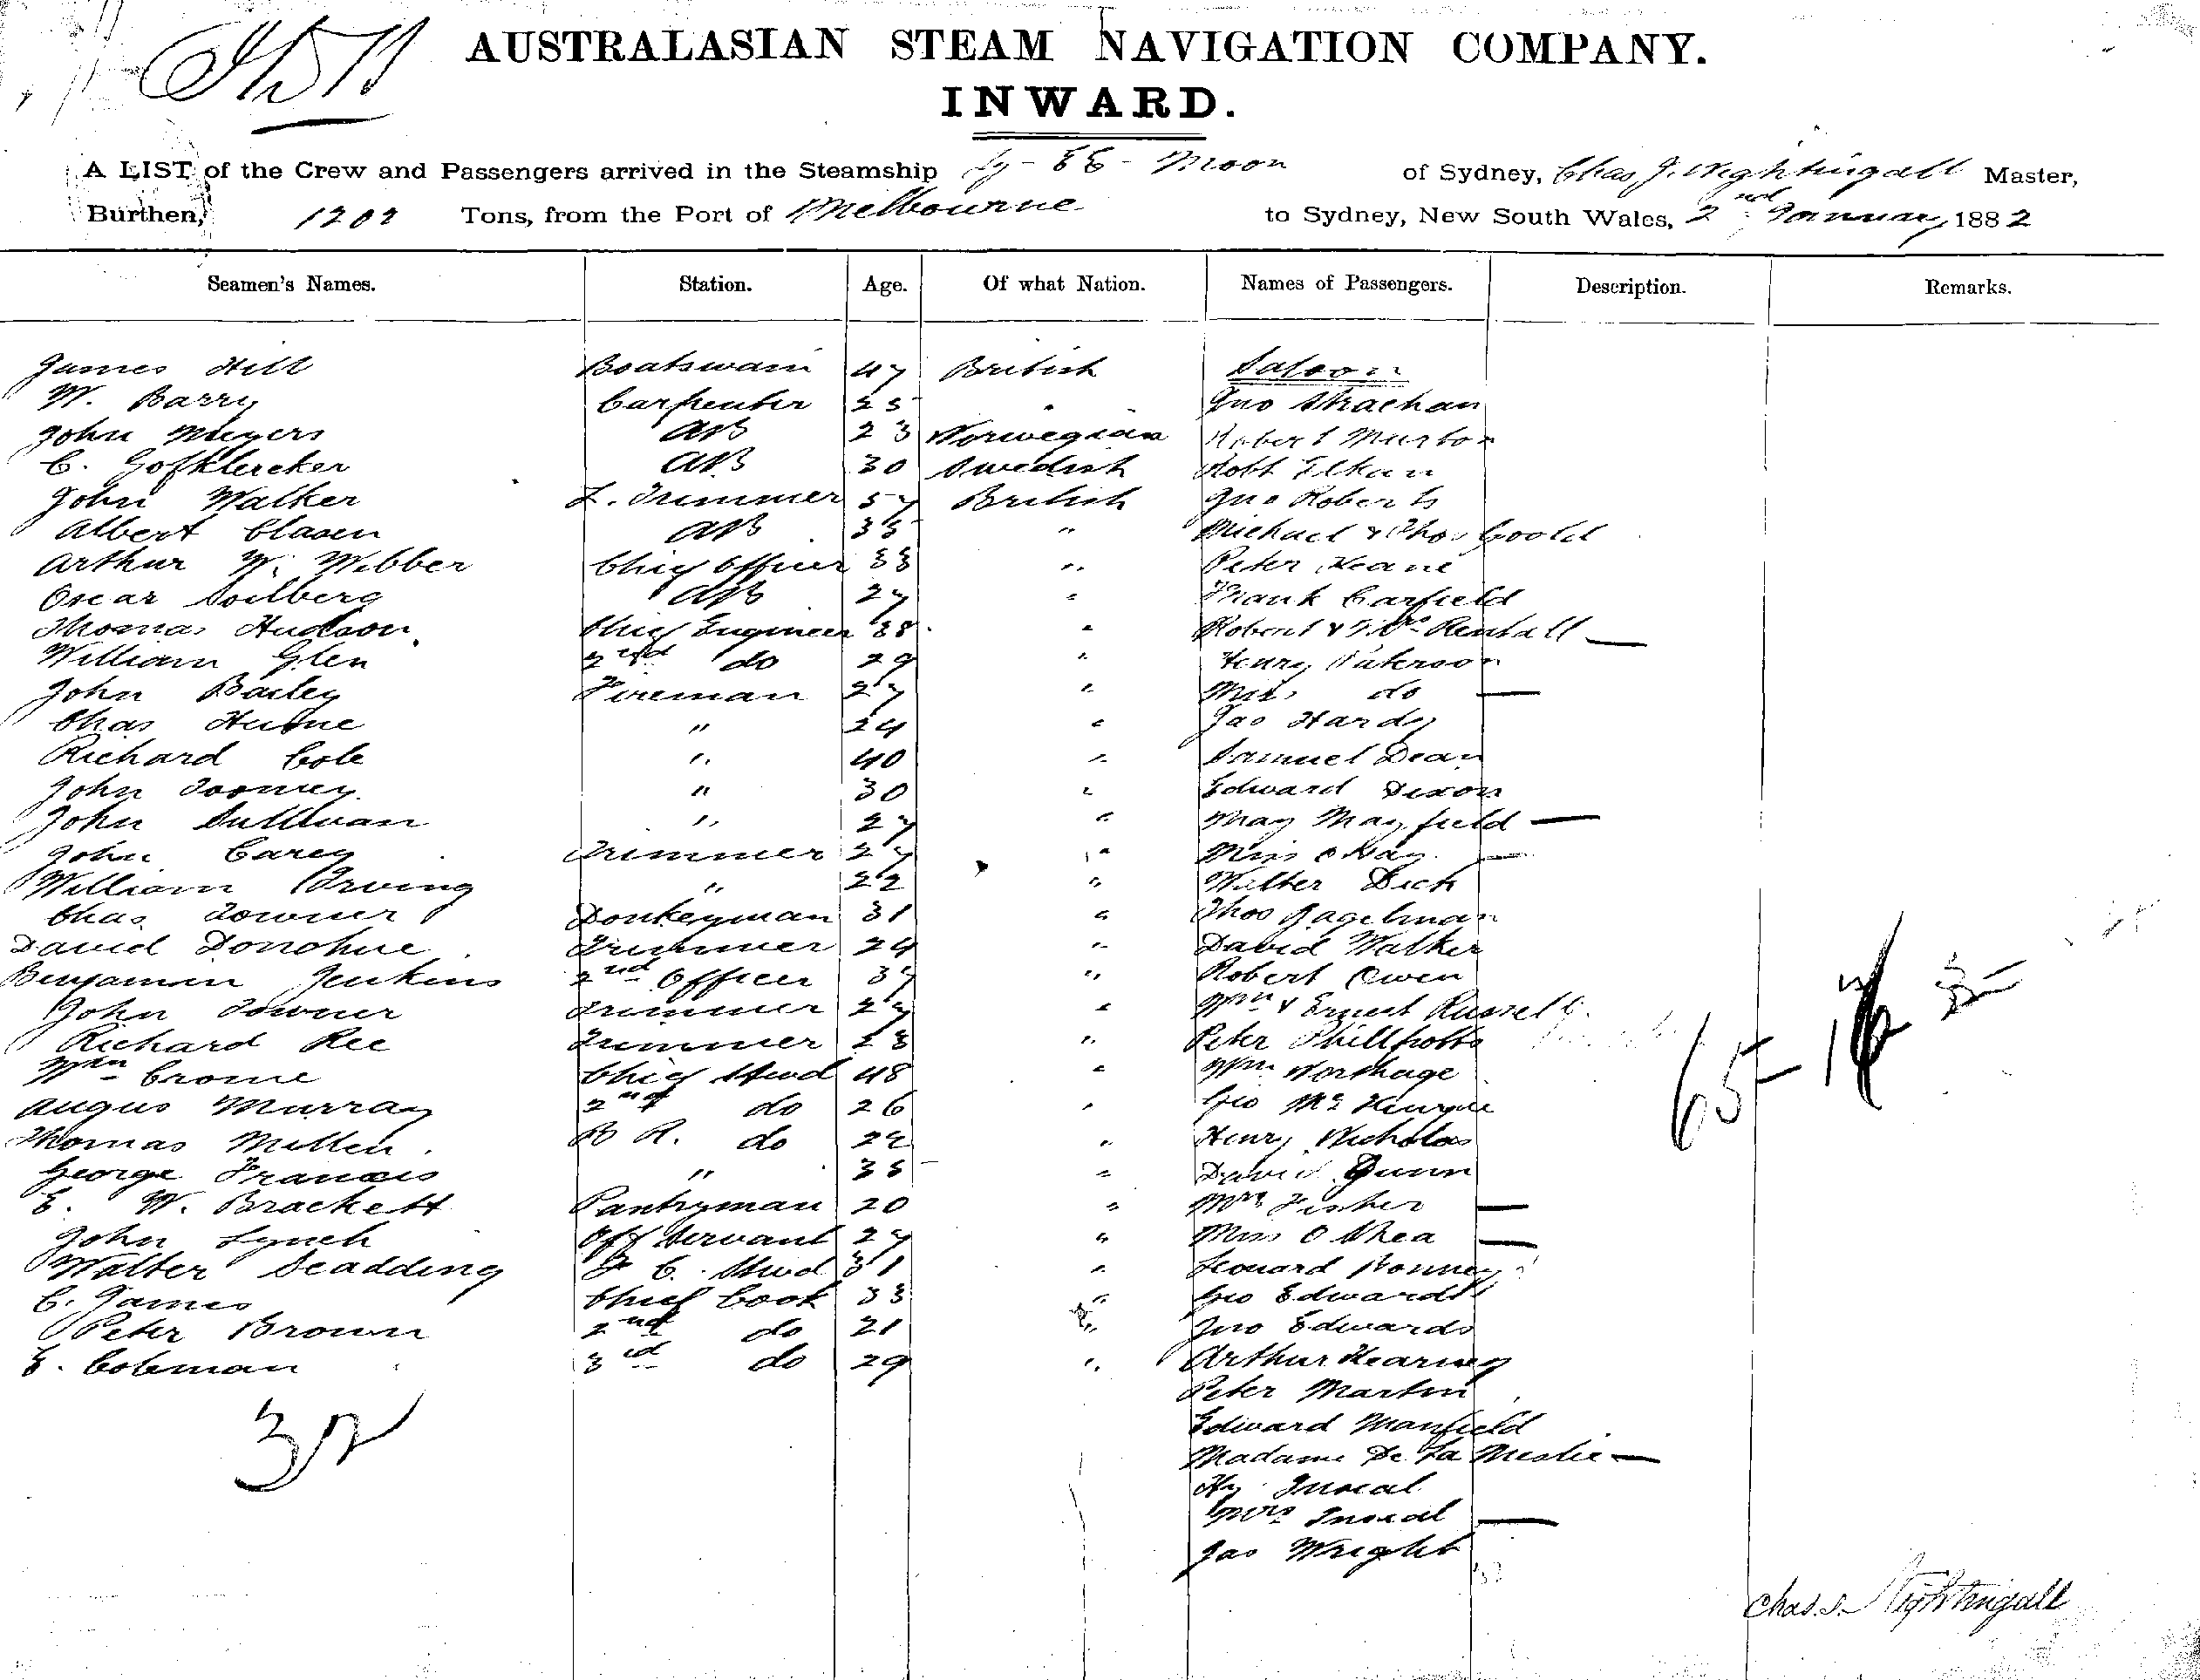 AUSTRALASIAN STEAM NAVIGATION COMPANY.
INWARD.
A LIST of the Crew and Passengers arrived in the Steamship Ly-EE-Moon of Sydney, Chas J. Nightingall Master,
Burthen, 1202 Tons, from the Port of Melbourne to Sydney, New South Wales, 2nd January 1882
Seamen's Names. Station. Age. Of what Nation. Names of Passengers. Description. Remarks.
James Hill Boatswain 47 British Saloon
W. Barry Carpenter 25 " Jno Strachan
John Meyers AB 23 Norwegian Robert Murton
C. AB 30 Swedish Robt Elkan
John Walker L. Trimmer 57 British Jno Roberts
Albert Clasen AB 35 " Michael & Thos Goold
Arthur W. Webber Chief Officer 33 " Peter Keane
Oscar Soilberg AB 27 " Frank Garfield
Thomas Hudson Chief Engineer 38 " Robert & Rentall —
William Glen 2nd do 29 " Henry Paterson
John Bailey Fireman 27 " Mrs do —
Chas Hulme " 24 " Jas Hardy
Richard Cole " 40 " Samuel Dean
John Toomey " 30 " Edward Dixon
John Sullivan " 27 " May Mayfield —
John Carey Trimmer 27 " Miss —
William Irving " 22 " Walter Dick
Chas Towner Donkeyman 31 " Thos Gagelman
David Donohue Trimmer 24 " David Walker
Benjamin Jenkins 2nd Officer 37 " Robert Owen
John Towner Trimmer 27 " Wm & Ernest Russell
Richard Ree Trimmer 23 " Peter Phillpotts
Wm Crome Chief Stwd 48 " Wm Northage
Angus Murray 2nd do 26 " Geo
Thomas Millen B R. do 22 " Henry Nicholas
George Francis " 35 " David Gunn
E. W. Brackett Pantryman 20 " Mrs Fisher —
John Lynch Off Servant 27 " Miss O Shea —
Walter Scadding F C. Stwd 31 " Leonard Bonney
C. James Chief Cook 33 " Geo Edwards
Peter Brown 2nd do 21 " Jno Edwards
E. Coleman 3rd do 29 " Arthur Hearing
Peter Martin
Edward Manfield
Madame De La Mestie —
Hy Inseal
Mrs Inseal —
Jas Wright
32
65
Chas. J. Nightingall